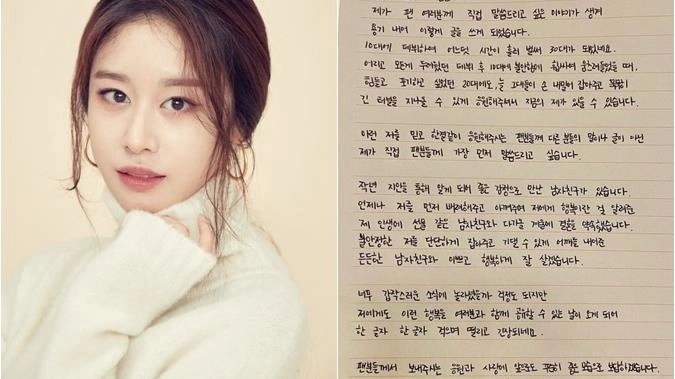 제가 팬 여러분께 직접 말씀드리고 싶은 이야기가 생겨
용기 내어 이렇게 글을 쓰게 되었습니다.
10대에 데뷔하여 어느덧 시간이 흘러 벌써 30대가 됐네요.
어리고 모든게 두려웠던 데뷔 후 10대에 불안함에 휩싸여 움츠러들었을 때,
힘들고 포기하고 싶었던 20대에도, 늘 그대들이 손 내밀어 잡아주고 묵묵히
긴 터널을 지나올 수 있게 응원해주셔서 지금의 제가 있을 수 있습니다.
이런 저를 믿고 한결같이 응원해주시는 팬분들께 다른 분들의 말이나 글이 아닌
제가 직접 팬분들께 가장 먼저 말씀드리고 싶습니다.
작년 지인을 통해 알게 되어 좋은 감정으로 만난 남자친구가 있습니다.
언제나 저를 먼저 배려해주고 아껴주며 저에게 행복이란 걸 알려준
제 인생에 선물 같은 남자친구와 다가올 겨울에 결혼을 약속했습니다.
불안정한 저를 단단하게 잡아주고 기댈 수 있게 어깨를 내어준
든든한 남자친구와 예쁘고 행복하게 잘 살겠습니다.
너무 갑작스러운 소식에 놀라셨을까 걱정도 되지만
저에게도 이런 행복을 여러분과 함께 공유할 수 있는 날이 오게 되어
한 글자 한 글자 적으며 떨리고 긴장되네요.
팬분들께서 보내주시는 응원과 사랑에 앞으로도 꾸준히 좋은 모습으로 보답하겠습니다.